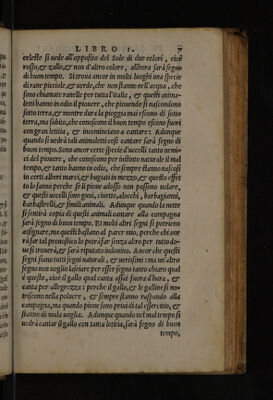 LIBRO I. 7
celeste si vede all'opposito del Sole di due colori, cioè
rosso, & zallo, & non d'altro colore, allhora sarà segno
di buon tempo. Si troua ancor in molti luoghi una specie
di rane picciole, & uerde, che non stanno nell'acqua, che
sono chiamate ranelle per tutta l'Italia, & questi anima
letti hanno in odio il piouere, che piouendo si nascondono
sotto terra, & mentre dura la pioggia mai escono di sotto
terra, ma subito, che conoscono il buon tempo escono fuori
con gran letitia, & incominciano a cantare: Adunque
quando si uedrà tali animaletti così cantare sarà segno di
buon tempo. Sono ancor certe specie d'uccelli tanto nemi
ci del piouere, che conoscono per instinto naturale il mal
tempo, & tanto hanno in odio, che sempre stanno nascosti
in certi alberi marci, & bugiati in mezzo, & questo effet
to lo fanno perche se li pioue adosso non possono uolare,
& questi uccelli sono guui, ciuette, alocchi, barbagianni,
barbastrelli, & simili animali. Adunque quando la notte
si sentirà copia di questi animali cantare alla campagna
sarà segno di buon tempo. Et molti altri segni si potriano
assignare, ma questi bastano al parer mio, perche chi vor
rà far tal pronostico lo potrà far senza altro per tutto do-
ue si trouerà, & sarà reputato indouino. Ancor che questi
segni siano tutti segni naturali, & uerissimi: ma un'altro
segno non uoglio lasciare per esser segno tanto chiaro qual
è questo, cioè il gallo qual canta assai fuora d'hora, &
canta per allegrezza: perche il gallo, & le galline si no
triscono nella poluere, & sempre stanno raspando alla
campagna, ma quando pioue sono priui di tal essercitio, &
stanno di mala uoglia. Adunque quando nel mal tempo si
vedrà cantar il gallo con tanta letitia, sarà segno di buon
tempo,